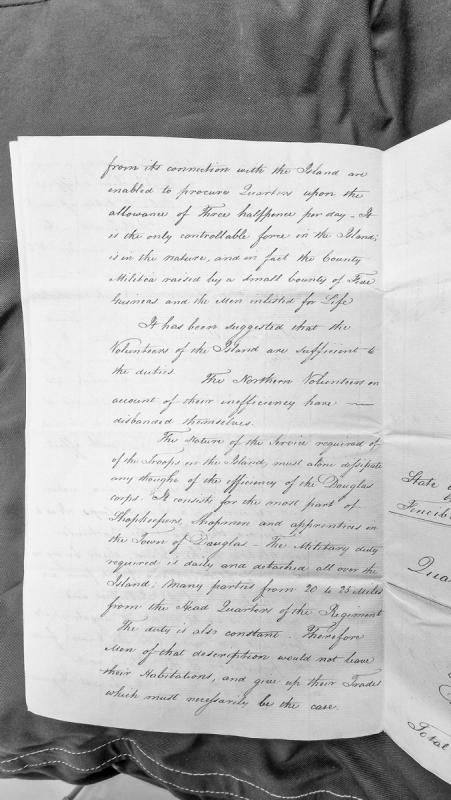 from its connection with the Island are
enabled to procure Quarters upon the
allowance of Three halfpence per day – It
is the only controllable force in the Island;
is in the nature, and in fact the County
Militia raised by a small bounty of Five
Guineas and the Men inlisted for Life
It has been suggested that the
Volunteers of the Island are sufficient to
the duties. The Northern Volunteers on
account of their inefficiency have —
disbanded themselves.
The Nature of the Service required of
of the Troops in the Island, must alone dissipate
any thought of the efficiency of the Douglas
corps. It consists for the most part of
Shopkeepers, Shopmen and apprentices in
the Town of Douglas – The Military duty
required is daily and detached all over the
Island; many parties from 20 to 25 Miles
from the Head Quarters of the Regiment
The duty is also constant. Therefore
Men of that description would not leave
their Habitations, and give up their Trades
which must necessarily be the case.
State
Fencib
Qua
Total